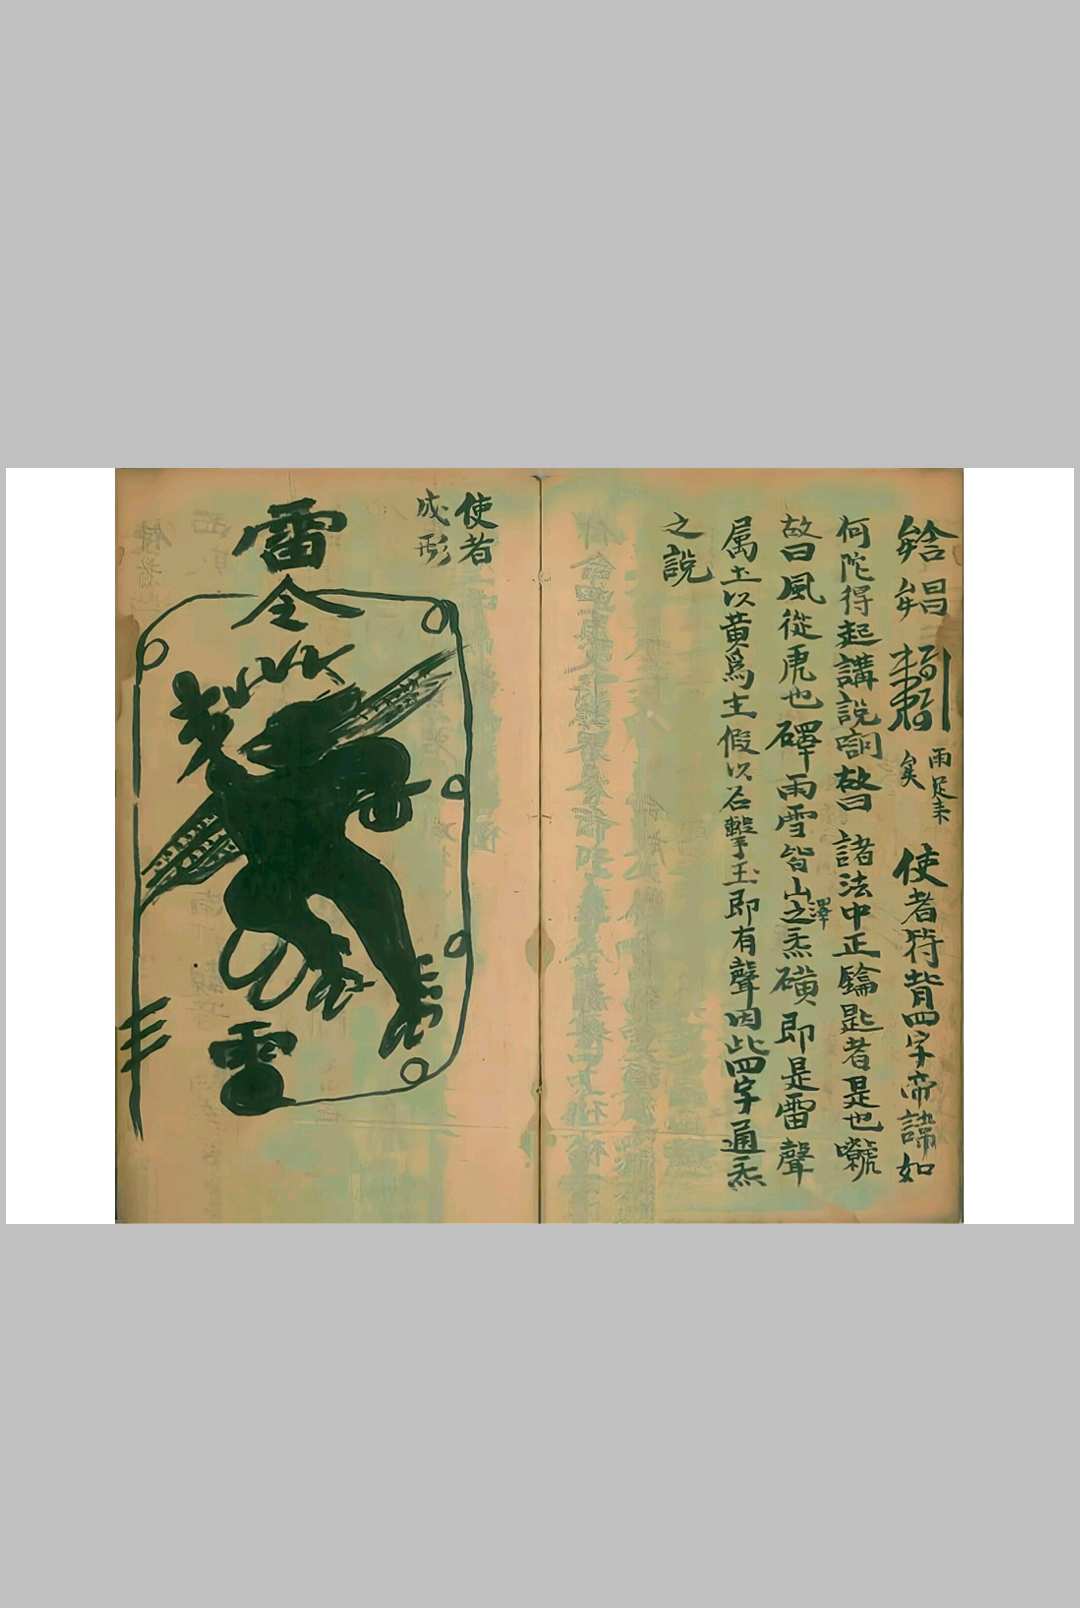 使者符背四字帝諱如
何陀得起講說詞故曰諸法中正鑰匙者是也
故曰風從虎也礋雨雪皆山澤之炁磺即是雷聲
属土以黄爲主假以石擊玉即有聲因此四字通炁
之說
使者
成形
雷
令